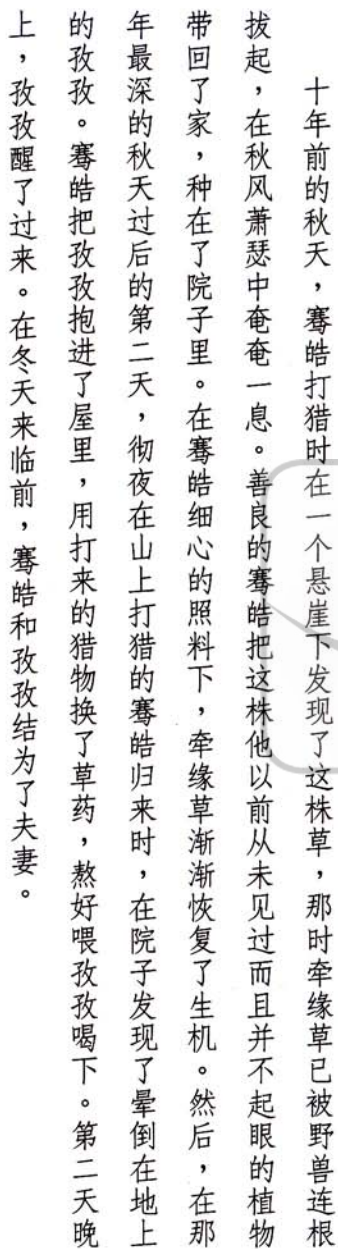 十年前的秋天，骞皓打猎时在一个悬崖下发现了这株草，那时牵缘草已被野兽连根
拔起，在秋风萧瑟中奄奄一息。善良的骞皓把这株他以前从未见过而且并不起眼的植物
带回了家，种在了院子里。在骞皓细心的照料下，牵缘草渐渐恢复了生机。然后，在那
年最深的秋天过后的第二天，彻夜在山上打猎的骞皓归来时，在院子发现了晕倒在地上
的孜孜。骞皓把孜孜抱进了屋里，用打来的猎物换了草药，熬好喂孜孜喝下。第二天晚
上，孜孜醒了过来。在冬天来临前，骞皓和孜孜结为了夫妻。